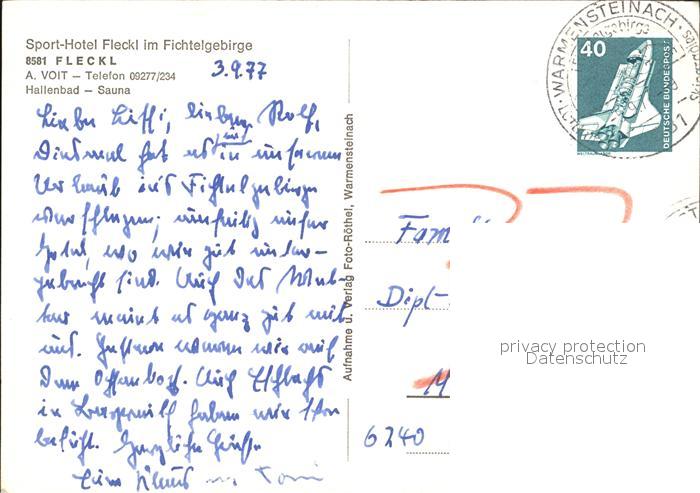 Sport-Hotel Fleckl im Fichtelgebirge
8581 FLECKL
A. VOIT — Telefon 09277/234
Hallenbad — Sauna
3.9.77
Rolf,
Diesmal hat es uns in unserem
Urlaub ins Fichtelgebirge
verschlagen; umseitig unser
Hotel, wo wir gut unter-
gebracht sind. Auch das Wet-
ter meint es ganz gut mit
uns. Gestern waren wir auf
dem Ochsenkopf. Auch
in haben wir schon
besucht. Herzliche Grüße
Toni
Aufnahme u. Verlag Foto-Röthel, Warmensteinach
WARMENSTEINACH
40
DEUTSCHE BUNDESPOST
Fam
Dipl-
M
6240
privacy protection
Datenschutz